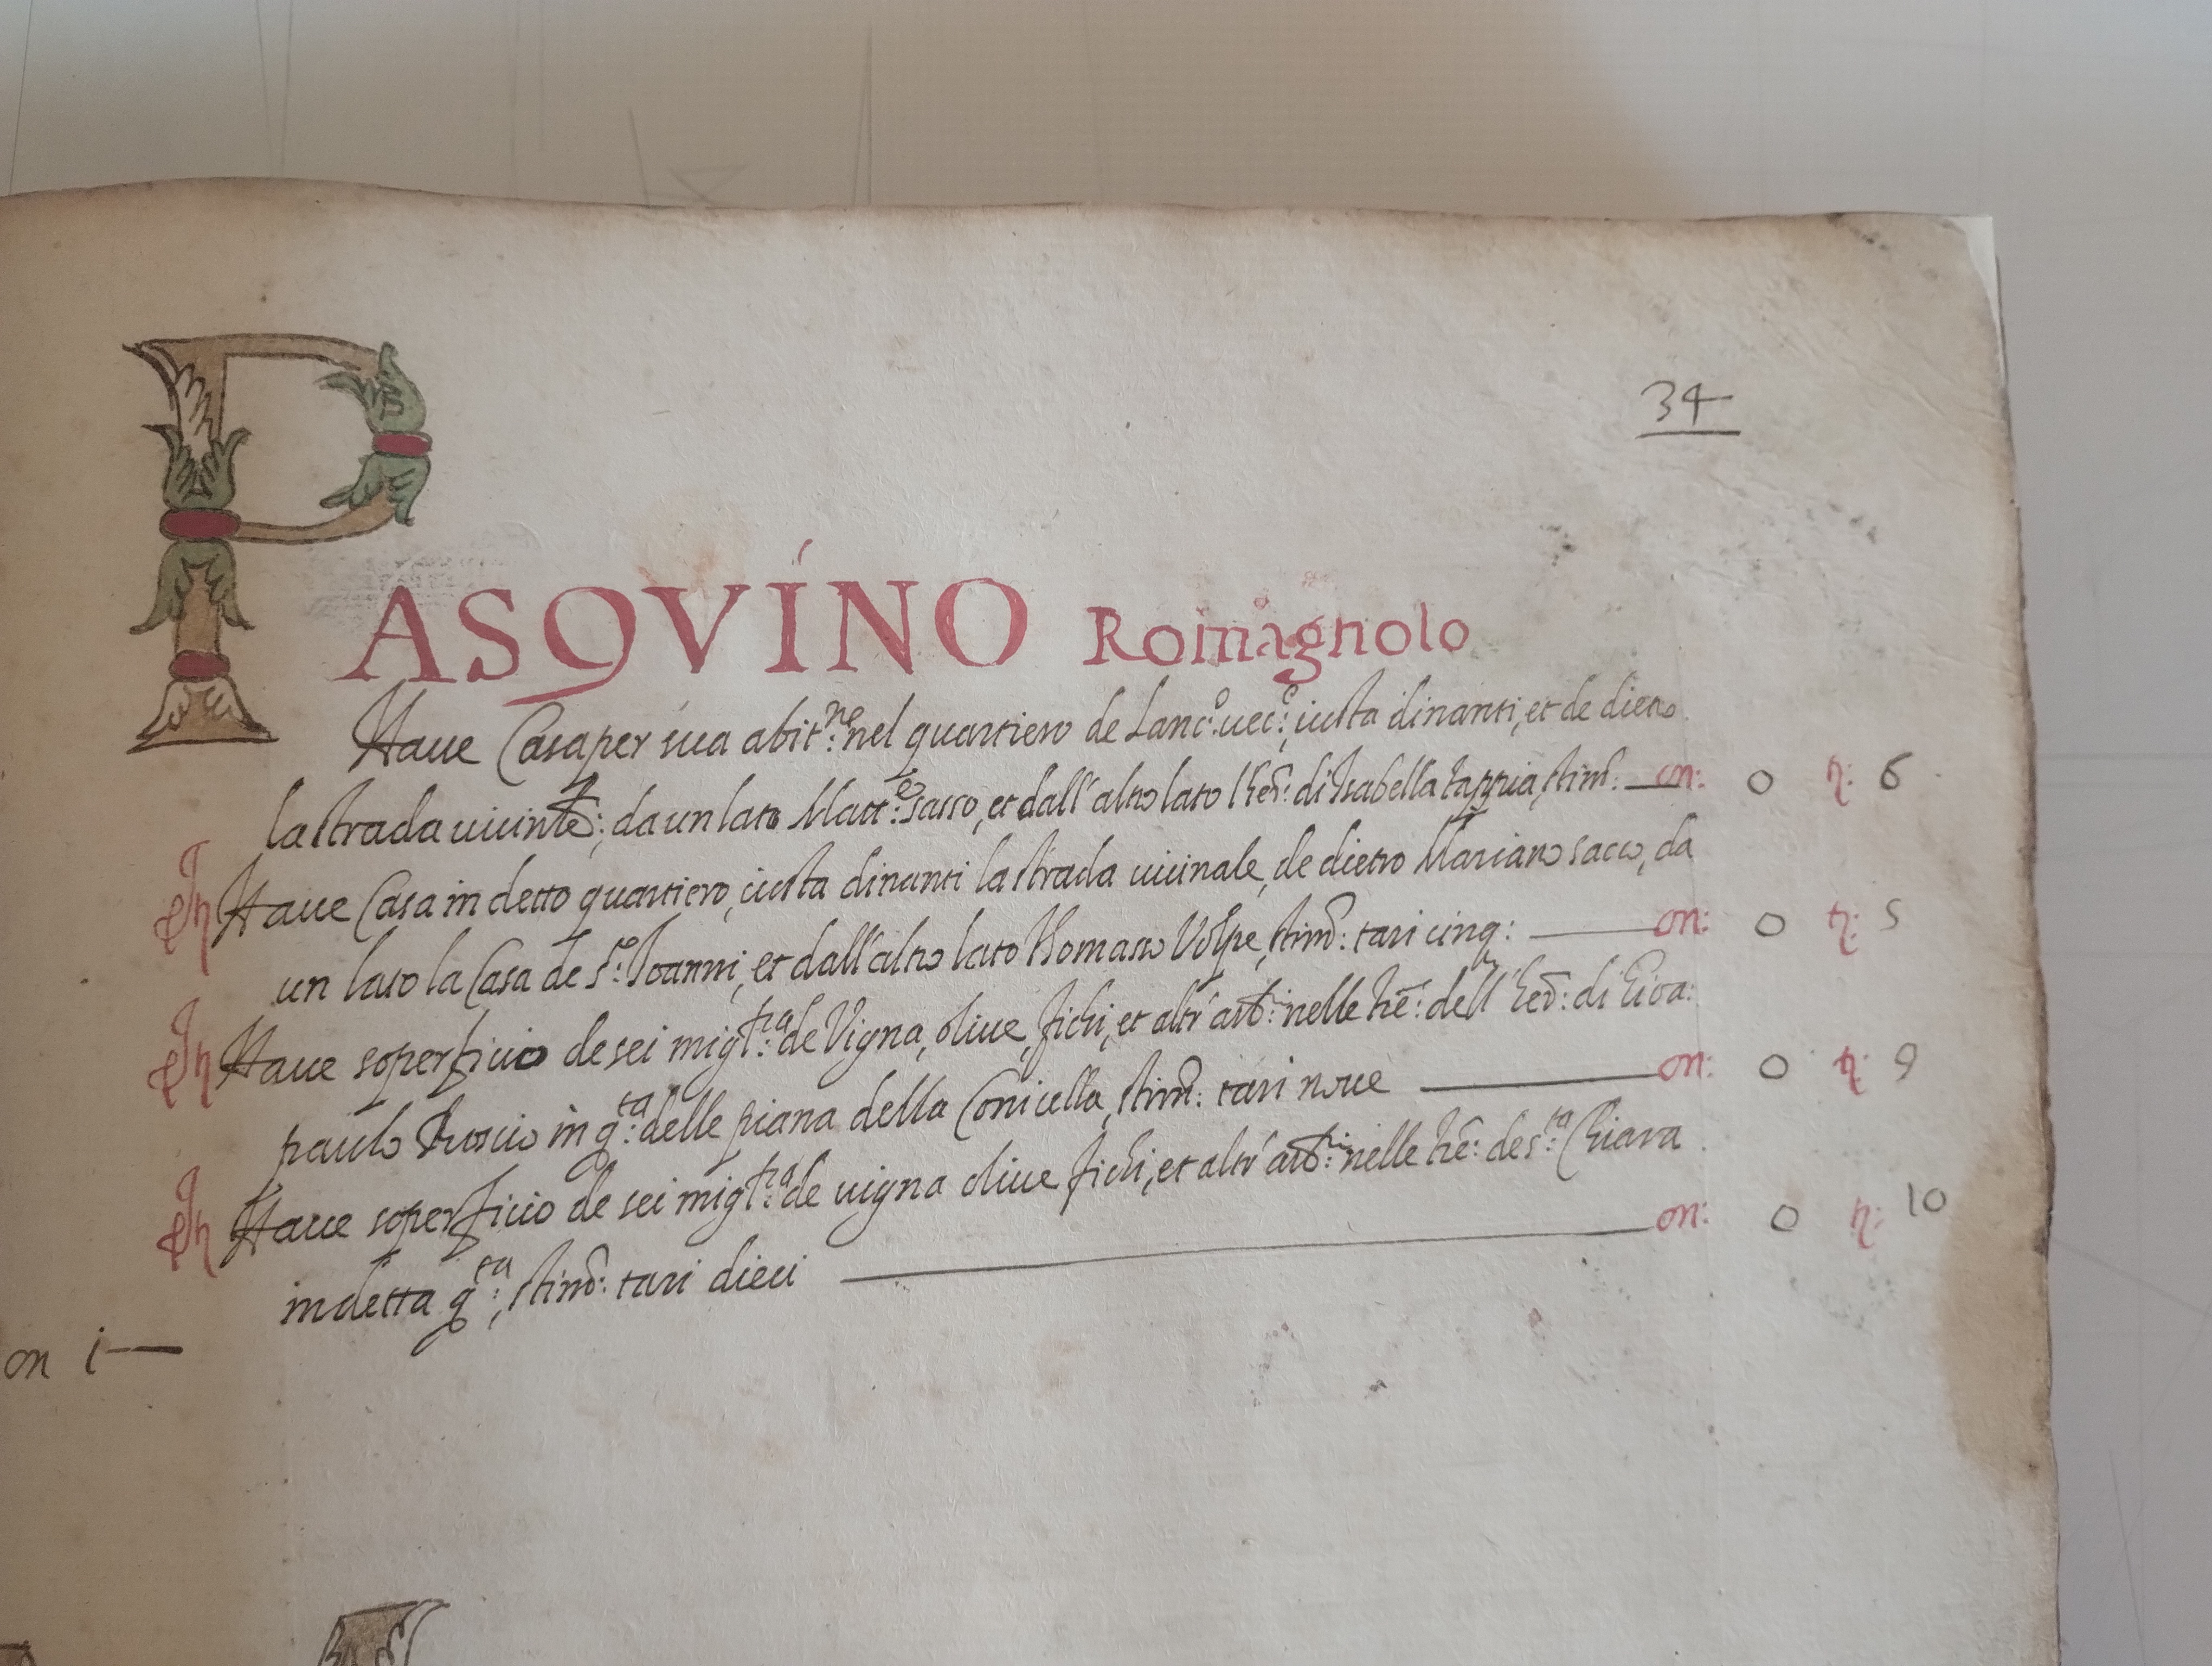 34
PASQVINO Romagnolo
Haue Casa per sua abit.ne nel quartiero de Lanc.o uec.o, iusta dinanti, et de dietro
la strada uicinle:, da un lato Matt.eo sasso, et dall'altro lato l'hed: di Isabella tappia, stim: on: 0 tr: 6
It Haue Casa in detto quartiero, iusta dinanti la strada uicinale, de dietro Mariano sacco, da
un lato la Casa de s.to Ioanni, et dall'altro lato Thomaso Volpe, stim: tari cinq: on: 0 tr: 5
It Haue soperficio de sei migl.ra de Vigna, oliue, fichi, et altr' arb.ri nelle tre: dell' hed: di Gioa:
paulo in q.ta delle piana della Conicella, stim: tari noue on: 0 tr: 9
It Haue soperficio de sei migl.ra de uigna oliue fichi, et altr' arb.ri nelle tre: de s.ta Chiara
in detta q.ta, stim: tari dieci on: 0 tr: 10
on i